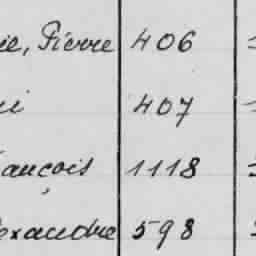 ie, Pierre 406
i 407
ançois 1118
exandre 598